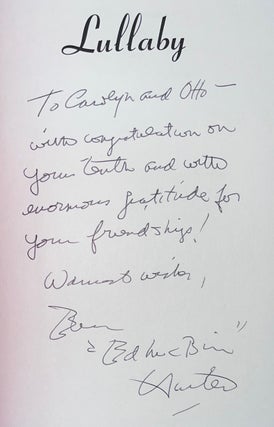 Lullaby
To Carolyn and Otto —
with congratulation on
your tenth and with
enormous gratitude for
your friendships!
Warmest wishes,
"Ed McBain"
Hunter